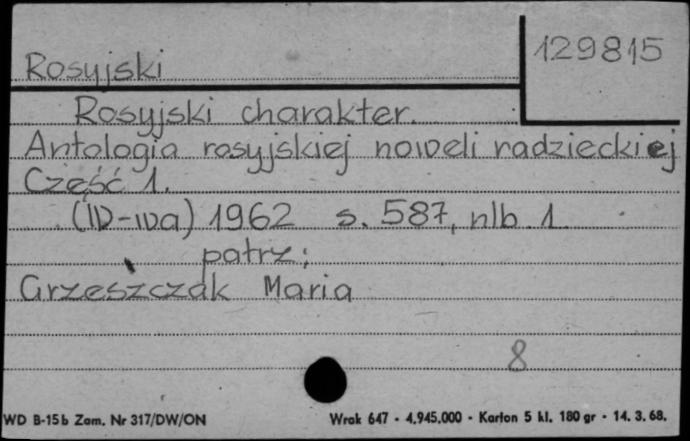 129815
Rosyjski
Rosyjski charakter.
Antologia rosyjskiej noweli radzieckiej
Część 1.
(W-wa) 1962 s. 587, nlb. 1.
patrz:
Grzeszczak Maria
8
WD B-15b Zam. Nr 317/DW/ON
Wrak 647 - 4.945.000 - Karton 5 kl. 180 gr - 14. 3. 68.